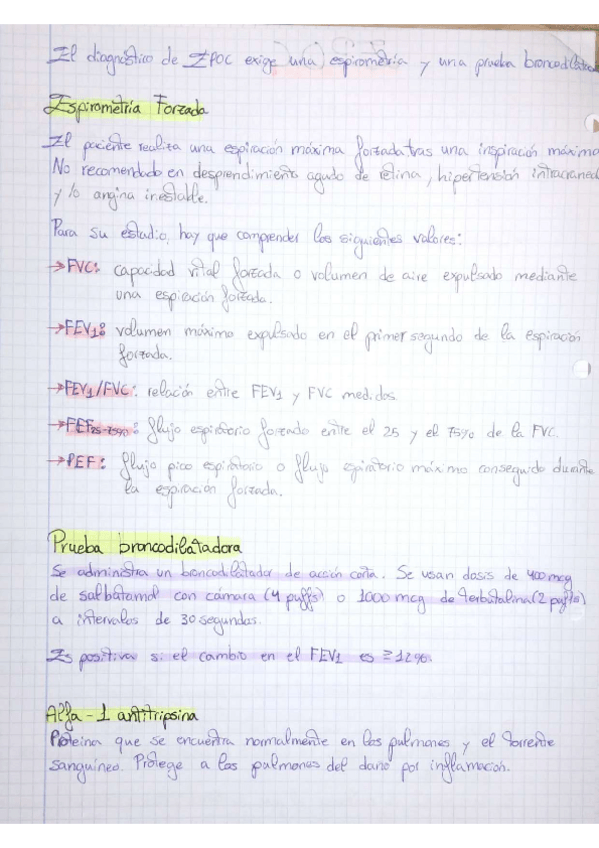 El diagnóstico de EPOC exige una espirometría y una prueba broncodilatad
Espirometría Forzada
El paciente realiza una espiración máxima forzada tras una inspiración máxima
No recomendado en desprendimiento agudo de retina, hipertensión intracraneal
y/o angina inestable.
Para su estudio, hay que comprender los siguientes valores:
→FVC: capacidad vital forzada o volumen de aire expulsado mediante
una espiración forzada.
→FEV1: volumen máximo expulsado en el primer segundo de la espiración
forzada.
→FEV1/FVC: relación entre FEV1 y FVC medidos.
→FEF25-75%: flujo espiratorio forzado entre el 25 y el 75% de la FVC.
→PEF: flujo pico espiratorio o flujo espiratorio máximo conseguido durante
la espiración forzada.
Prueba broncodilatadora
Se administra un broncodilatador de acción corta. Se usan dosis de 400 mcg
de salbutamol con cámara (4 puffs) o 1000 mcg de terbutalina (2 puffs)
a intervalos de 30 segundos.
Es positiva si el cambio en el FEV1 es ≥12%.
Alfa-1 antitripsina
Proteina que se encuentra normalmente en los pulmones y el torrente
sanguíneo. Protege a los pulmones del daño por inflamación.